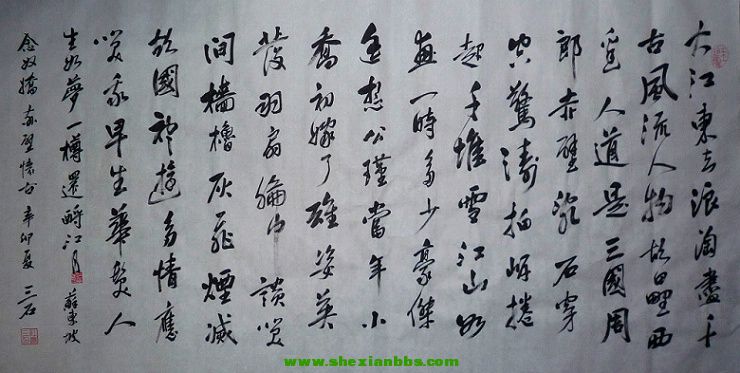 大江東去浪淘盡千
古風流人物故壘西
邊人道是三國周
郎赤壁亂石穿
空驚濤拍岸捲
起千堆雪江山如
畫一時多少豪傑
遙想公瑾當年小
喬初嫁了雄姿英
發羽扇綸巾談笑
間檣櫓灰飛煙滅
故國神遊多情應
笑我早生華髮人
生如夢一樽還酹江月 蘇東坡
念奴嬌赤壁懷古 辛卯夏 三石
www.shexianbbs.com